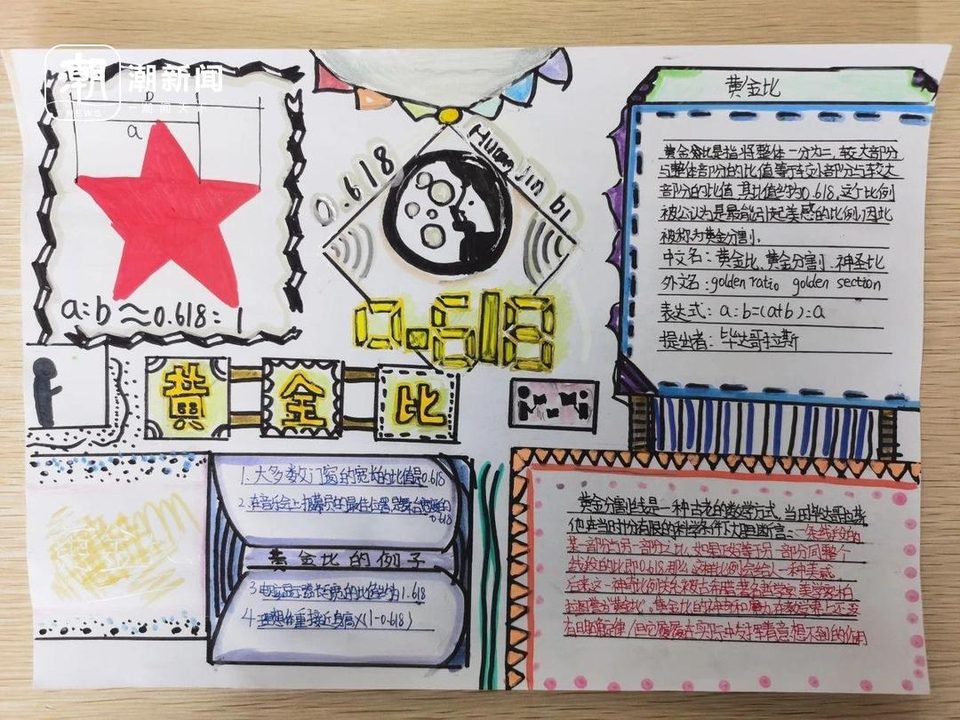 潮 潮新闻
NEWS
b
a
a:b≈0.618:1
0.618
Huang jin bi
0.618
黄金比
黄金比
黄金分比是指将整体一分为二,较大部分
与整体部分的比值等于较小部分与较大
部分的比值,其比值约为0.618,这个比例
被公认为是最能引起美感的比例,因此
被称为黄金分割.
中文名:黄金比、黄金分割、神圣比
外文名:golden ratio golden section
表达式:a:b=(a+b):a
提出者:毕达哥拉斯
1.大多数门窗的宽长的比值是0.618
2.在音乐会上报幕员的最佳位置是舞台宽度的
0.618
黄金比的例子
3.电视显示器长与宽的比值约为1.618
4.理想体重接近身高×(1-0.618)
黄金分割比线是一种古老的数学方式,当时毕达哥拉斯
他在当时十分有限的科学条件下大胆断言:一条线段的
某一部分与另一部分之比,如果正好等于另一部分同整个
线段的比即0.618,那么,这样比例会给人一种美感
后来,这一神奇比例关系被古希腊著名哲学家、美学家柏
拉图誉为"黄金比",黄金比的神奇和魔力,在数学界上还没
有明确定律,但它屡屡在实际中发挥着意想不到的作用